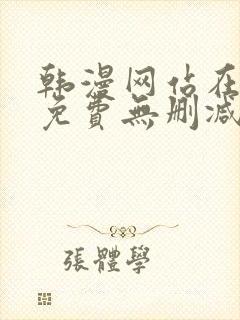 韩漫网站在
免費無删减
張體學